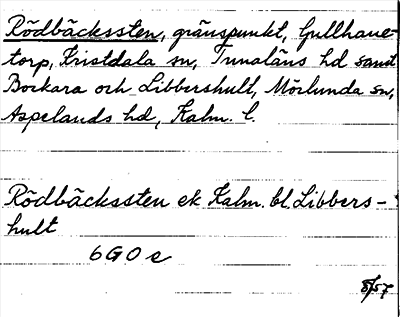 Rödbäckssten, gränspunkt, Gullhane-
torp, Kristdala sn, Tunaläns hd samt
Bockara och Libbershult, Mörlunda sn,
Aspelands hd, Kalm. l.
Rödbäckssten ek Kalm. bl. Libbers-
hult
6G0e